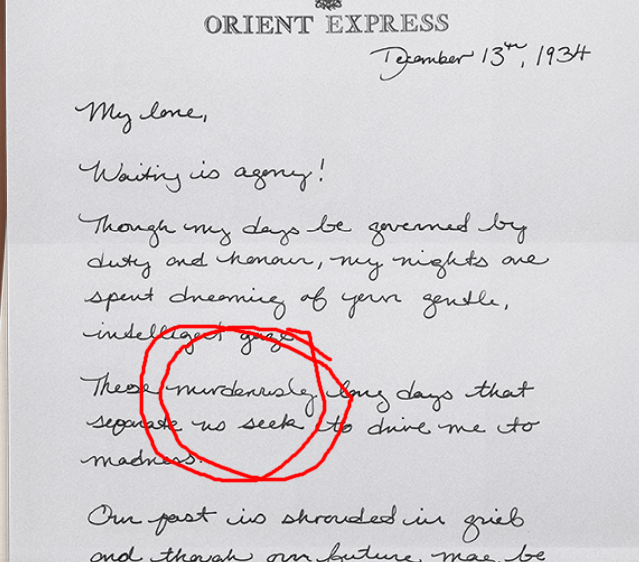 ORIENT EXPRESS
December 13th, 1934
My love,
Waiting is agony!
Though my days be governed by
duty and honour, my nights are
spent dreaming of your gentle,
intelligent gaze.
These murderously long days that
separate us seek to drive me to
madness.
Our past is shrouded in grief
and though our future may be